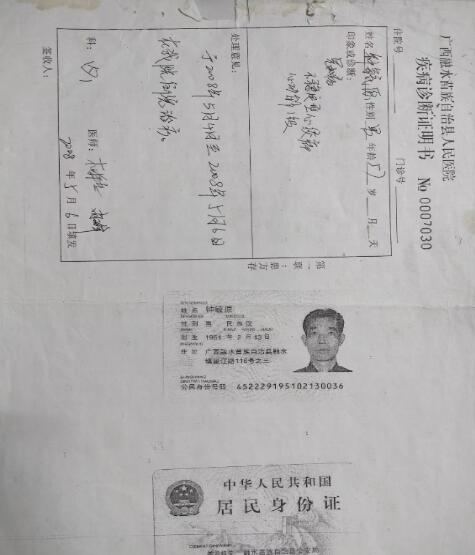 广西融水苗族自治县人民医院
疾病诊断证明书 No 0007030
住院号 门诊号
姓名 性别 男 年龄 57 岁 月 天
印象或诊断：
冠心病
不稳定型心绞痛
心功能 级
处理意见：
于2008年5月4日至2008年5月6日
在我院住院治疗。
科： 医师：
签收人： 2008年5月6日填发
第一联：患方存
姓名 钟毓源
性别 男 民族 汉
出生 1951年2月13日
住址 广西融水苗族自治县融水
镇 江路116号之三
公民身份号码 452229195102130036
中华人民共和国
居民身份证
签发机关 融水苗族自治县公安局